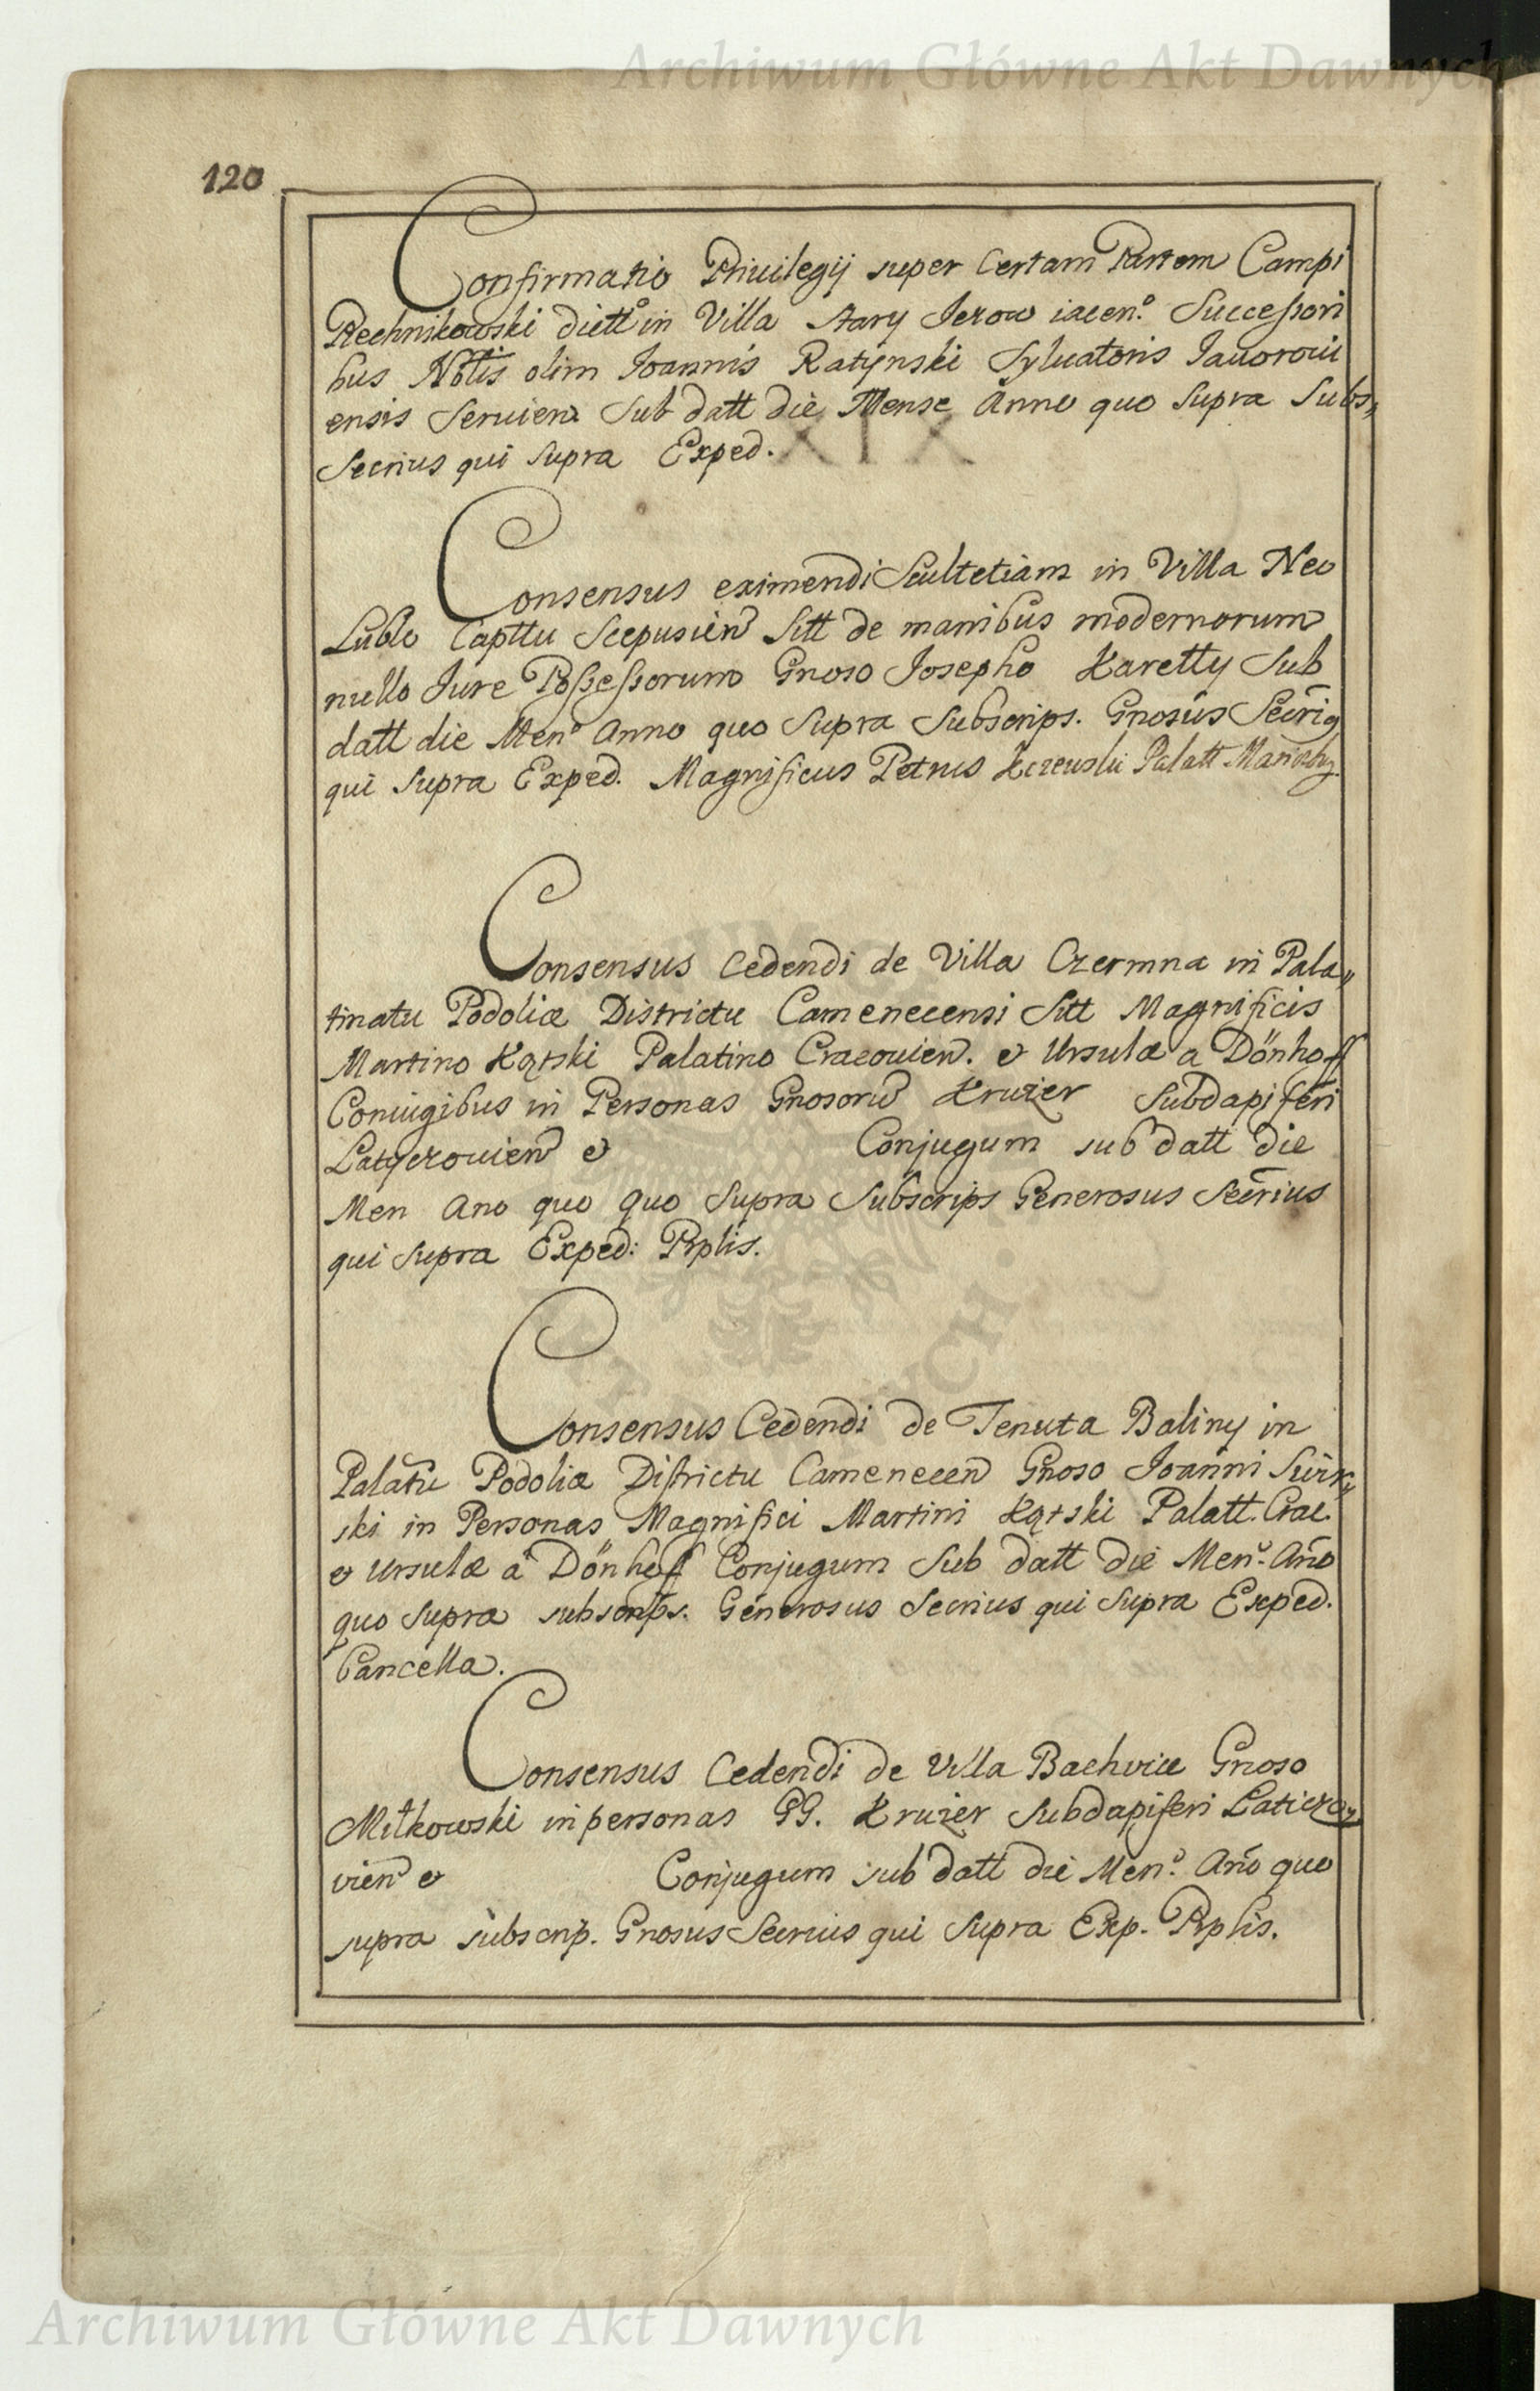 Archiwum Główne Akt Dawnych
120
Confirmatio Priuilegij super Certam Partem Campi
Rechnikowski dictt° in Villa Stary Jerow iacen° Successori
bus Nblis olim Joannis Ratynski Syluatoris Jauoroui
ensis Seruien. Sub datt die Mense Anno quo Supra Subs„
Secrius qui Supra Exped.
Consensus eximendi Scultetiam in Villa Neo
Lublo Capttu Scepusien Sitt de manibus modernorum
nullo Jure Possessorum Gnoso Josepho Karetty Sub
datt die Men° Anno quo Supra Subscrips. Gnosus Secrig
qui Supra Exped. Magnificus Petrus Kczewski Palatt Mariæbg.
Consensus Cedendi de Villa Czermna in Pala„
tinatu Podoliæ Districtu Camenecensi Sitt Magnificis
Martino Kątski Palatino Cracouien. et Ursulæ a Dönhoff
Coniugibus in Personas Gnosorū Kruzer Subdapiferi
Latyczouien et Conjugum sub datt die
Men Ano quo quo Supra Subscrips Generosus Secrius
qui Supra Exped: Rplis.
Consensus Cedendi de Tenuta Baliny in
Palatu Podoliæ Districtu Camenecen Gnoso Joanni Sūir„
ski in Personas Magnifici Martini Kątski Palatt. Crac.
et Ursulæ a Dönhoff Conjugum Sub datt die Men° Año
quo Supra subscrips. Generosus Secrius qui Supra Exped.
Cancella.
Consensus Cedendi de Villa Bachvice Gnoso
Miłkowski in personas GG. Kruzer Subdapiferi Laticzo„
vien et Conjugum sub datt die Men° Año quo
supra subscrip. Gnosus Secrius qui Supra Exp. Rplis.
Archiwum Główne Akt Dawnych